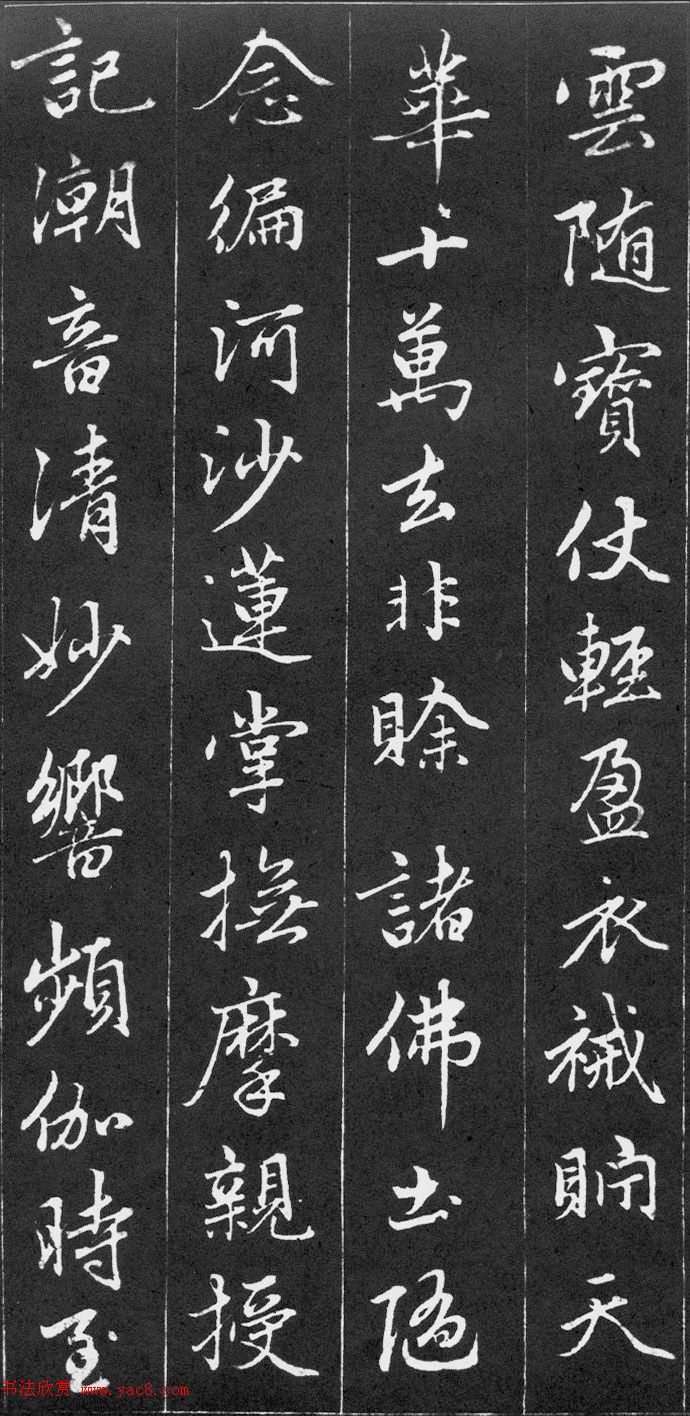 雲随寶仗輕盈衣祴貯天
華十萬去非賖諸佛土隨
念徧河沙蓮掌撫摩親授
記潮音清妙響頻伽時至
书法欣赏 www.yac8.com